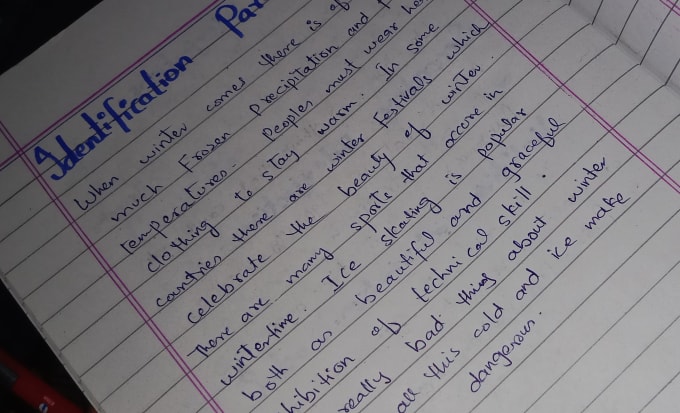 Identification Par
When winter comes there is of
much Frozen Precipitation and
temperatures. Peoples must wear he
clothing to stay warm. In some
countries there are winter Festivals which
celebrate the beauty of winter.
There are many sports that accore in
wintertime. Ice skating is popular
both as beautiful and graceful
hibition of technical skill.
really bad thing about winter
all this cold and ice make
dangerous.